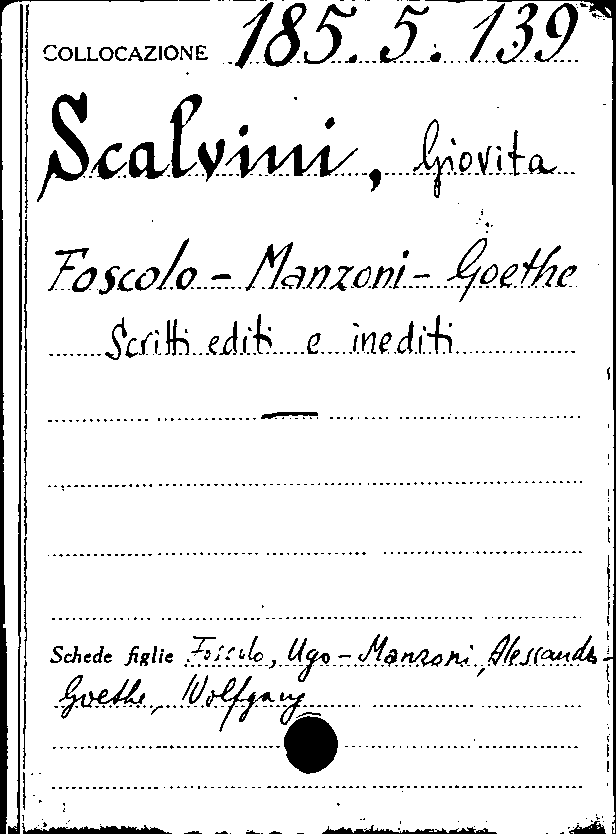 COLLOCAZIONE 185. 5. 139
Scalvini, Giovita
Foscolo - Manzoni - Goethe
Scritti editi e inediti
Schede figlie Foscolo, Ugo - Manzoni, Alessandro -
Goethe, Wolfgang